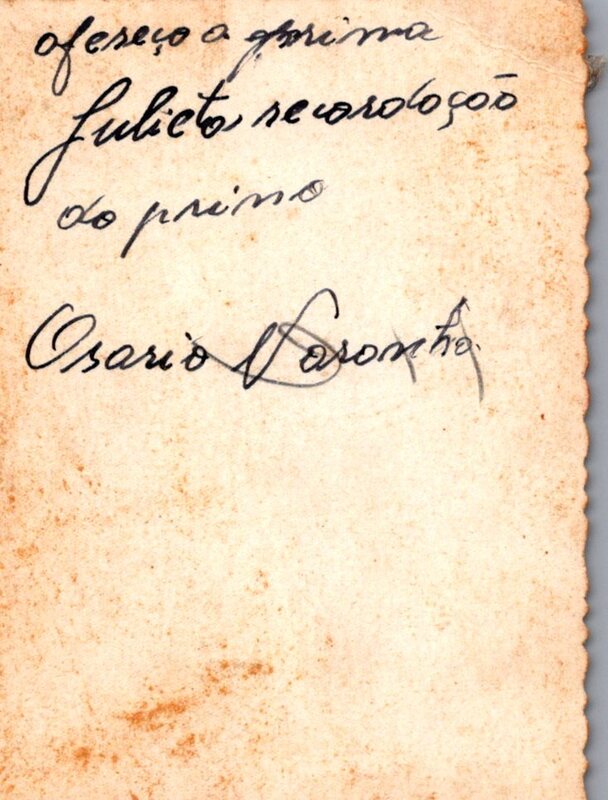 ofereço a prima
Julieta, recordação
do primo
Osario Noronha